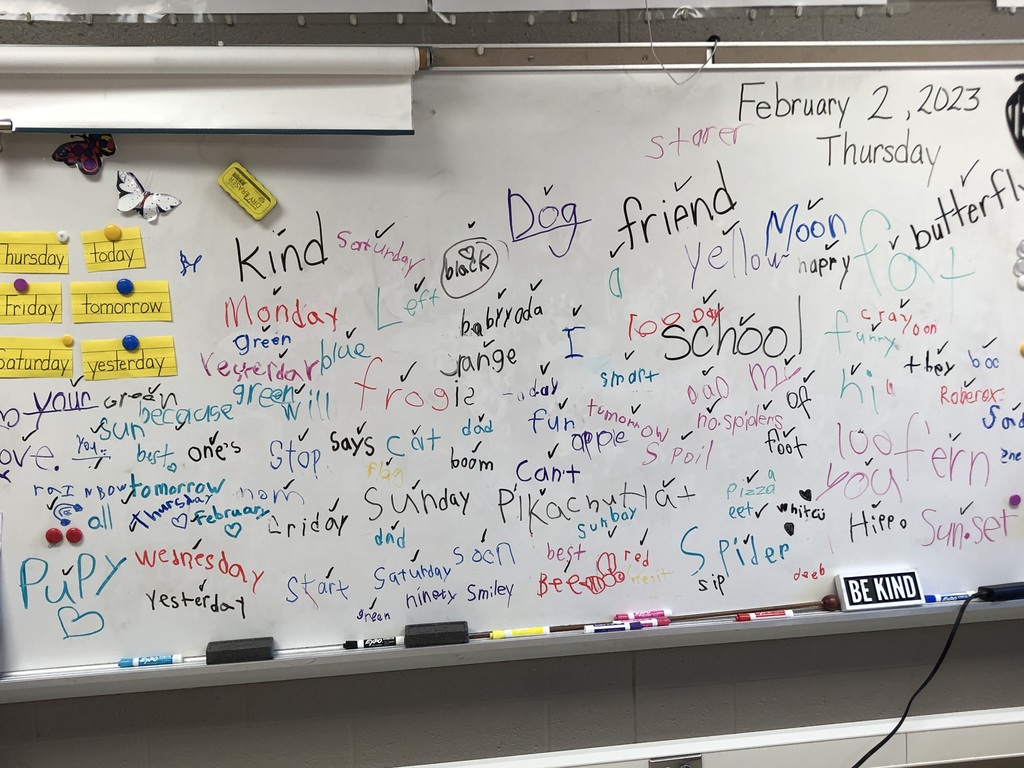 February 2, 2023
Thursday
starer
Thursday today
Friday tomorrow
Saturday yesterday
kind Saturday black Dog friend yellow Moon happy fat butterfly
Monday Left babyyoda I a Day school funny crayon
green
Yesterday blue range smart Dad my hi they boo
your green because green will frogie fun tomorrow no.spiders of Roberox
sun apple
You. best one's Stop says cat dad boom can't Spoil floot fern
flag
rainbow tomorrow mom Sunday Pikachu flat pizza you
all Thursday February Friday dad sunday eet Hippo Sun.set
PuPy wednesday Start Saturday soon best red Spider
yesterday green ninety Smiley Bee sip deeb
BE KIND